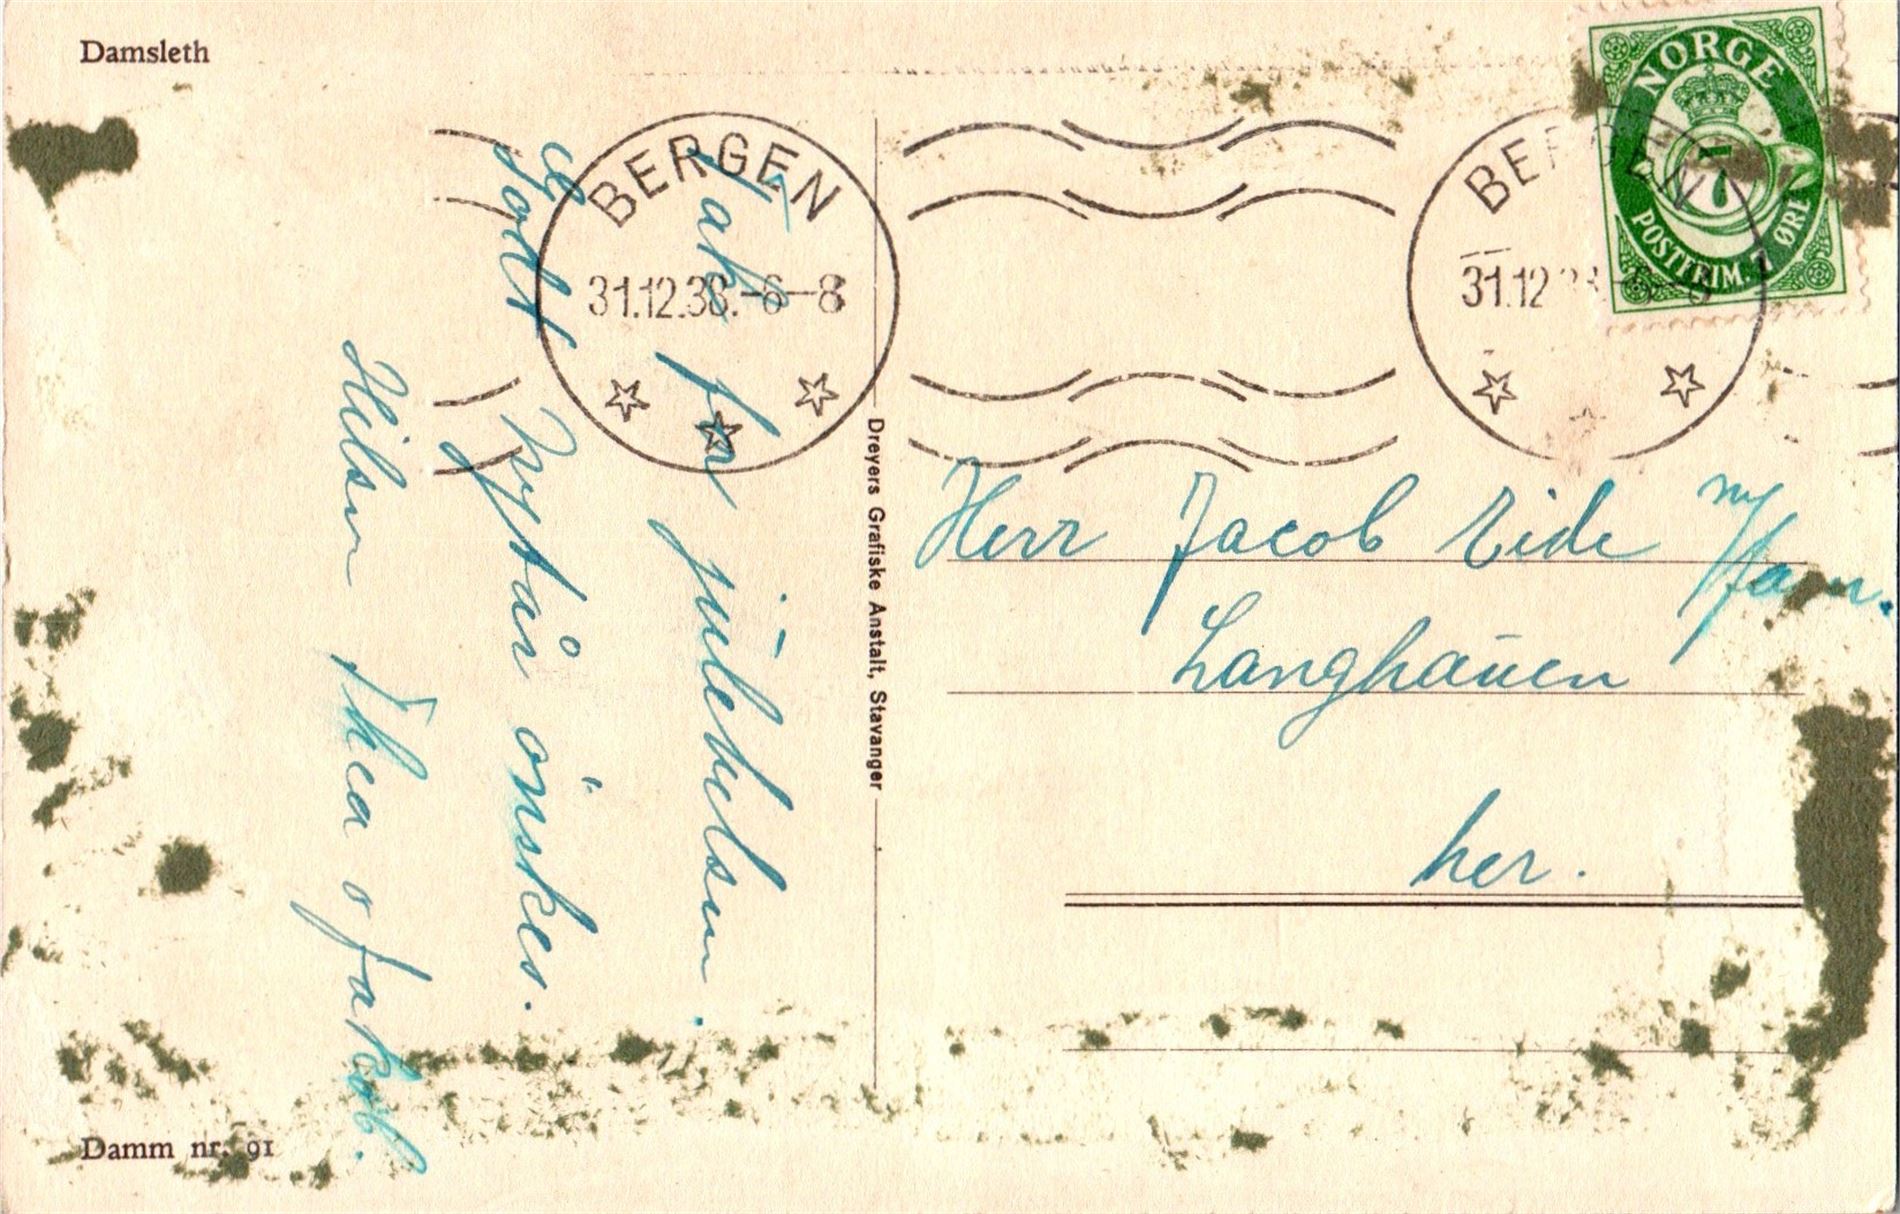 Damsleth
BERGEN
31.12.38.-6-8
BERGEN
31.12
NORGE
7
POSTFRIM. 7 ØRE
Takk for julehelsen.
Et godt
Nyttår önskes.
Hilsen Thea o Jakob.
Dreyers Grafiske Anstalt, Stavanger
Herr Jacob Eide m/fam.
Langhaŭen
her.
Damm nr. 91